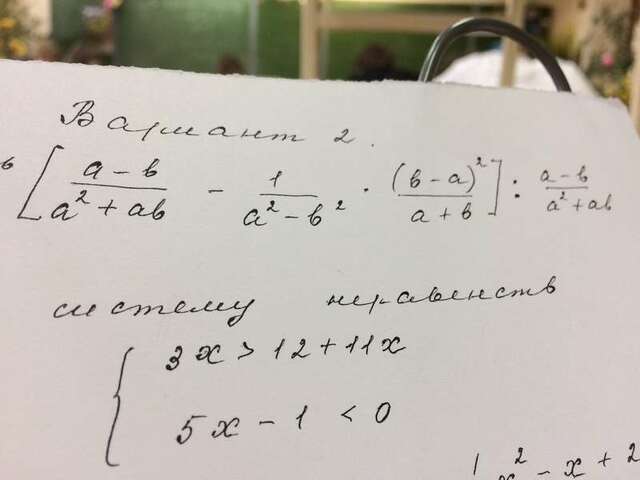 Вариант 2.
в [ (a-b)/(a²+ab) - 1/(a²-b²) · (b-a)²/(a+b) ] : (a-b)/(a²+ab)
систему неравенств
{ 3x > 12+11x
5x - 1 < 0
x² - x + 2